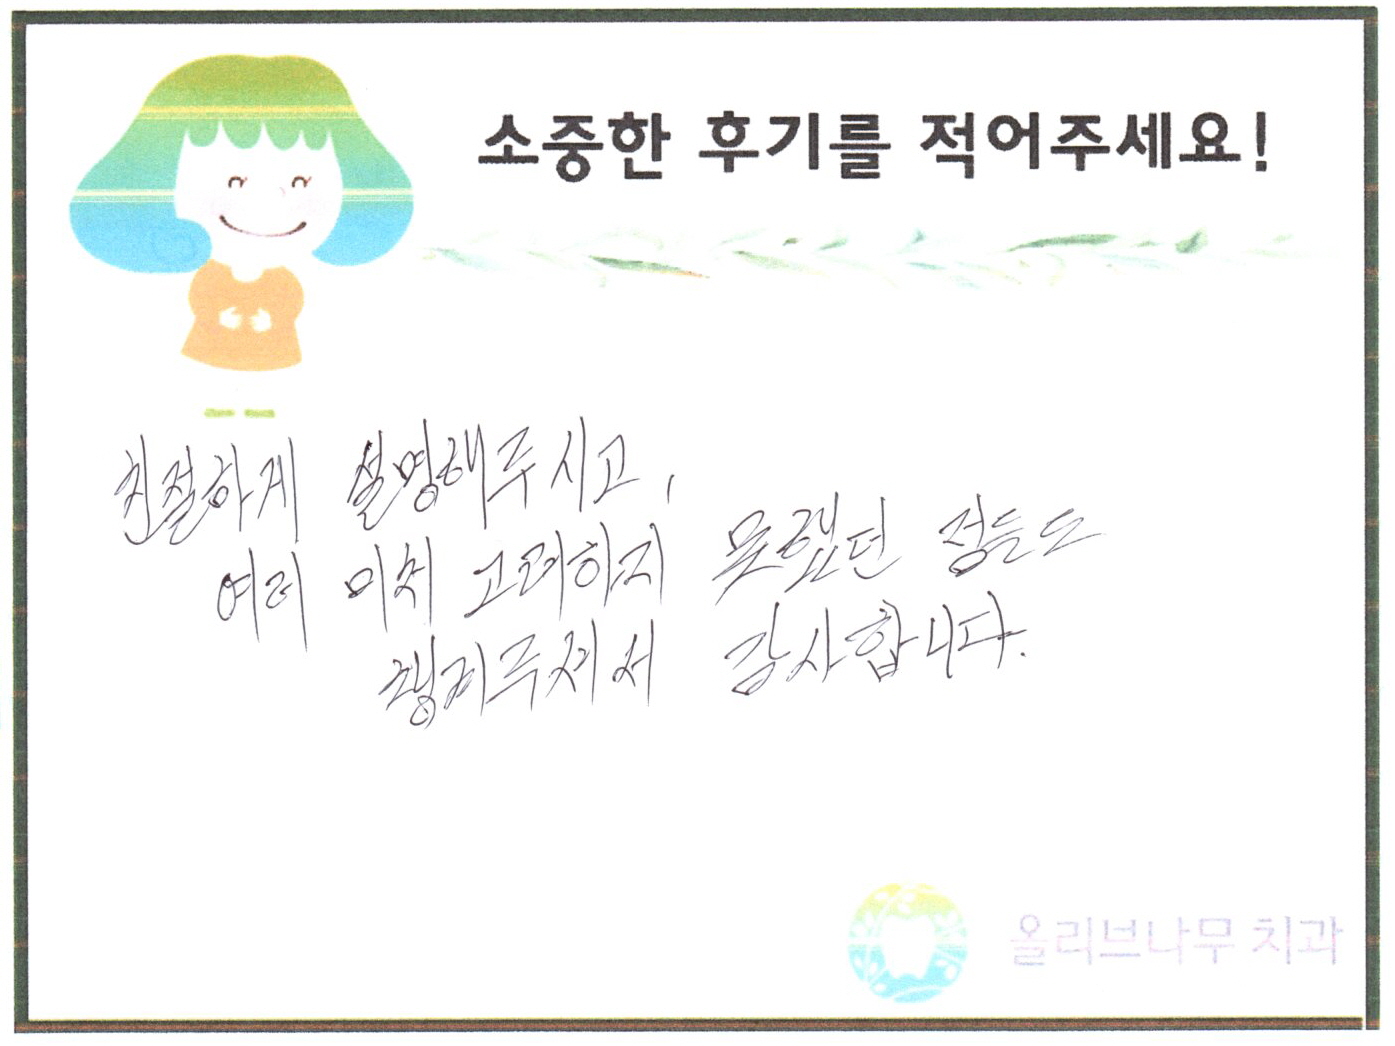 소중한 후기를 적어주세요!
친절하게 설명해주시고,
여러 미처 고려하지 못했던 점들도
챙겨주셔서 감사합니다.
올리브나무 치과